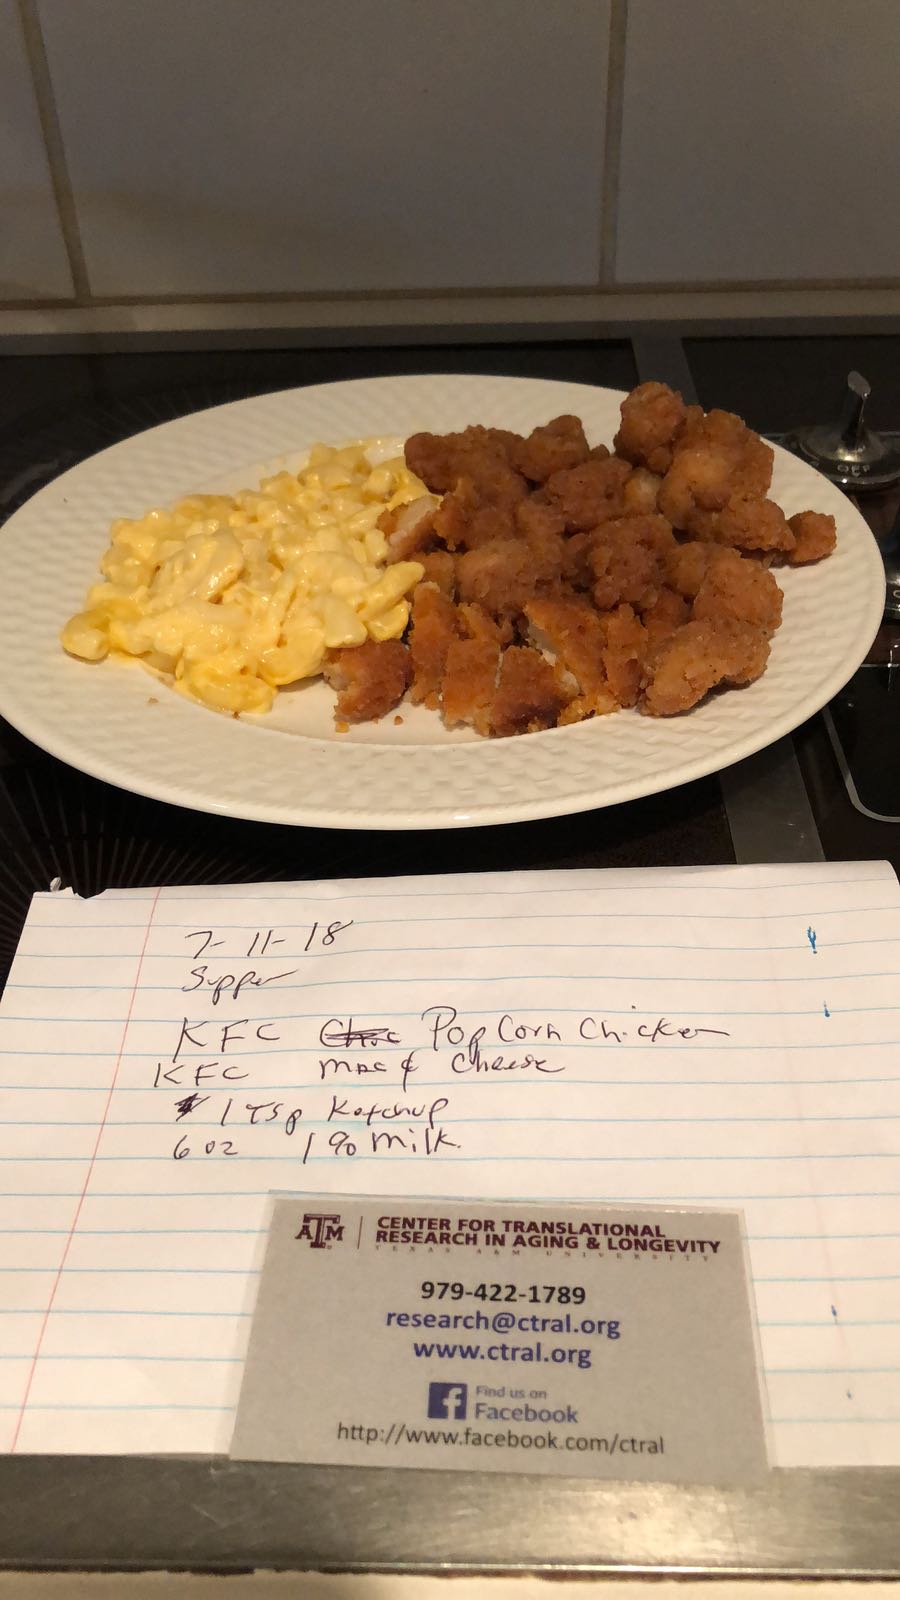 OFF
7-11-18
Supper
KFC Pop Corn Chicken
KFC Mac & Cheese
1 Tsp Ketchup
6 oz 1% Milk.
ATM
CENTER FOR TRANSLATIONAL
RESEARCH IN AGING & LONGEVITY
TEXAS A&M UNIVERSITY
979-422-1789
research@ctral.org
www.ctral.org
f Find us on
Facebook
http://www.facebook.com/ctral